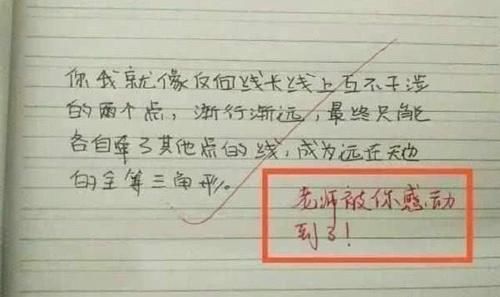 你我就像反向延长线上互不干涉
的两个点，渐行渐远，最终只能
各自牵了其他点的线，成为远在天边
的全等三角形。
老师被你感动
到了！